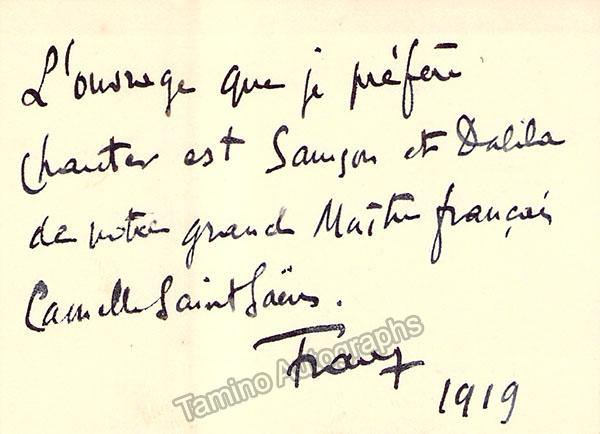 L'ouvrage que je préfère
chanter est Samson et Dalila
de notre grand Maître français
Camille Saint Saëns.
Franz
Tamino Autographs
1919